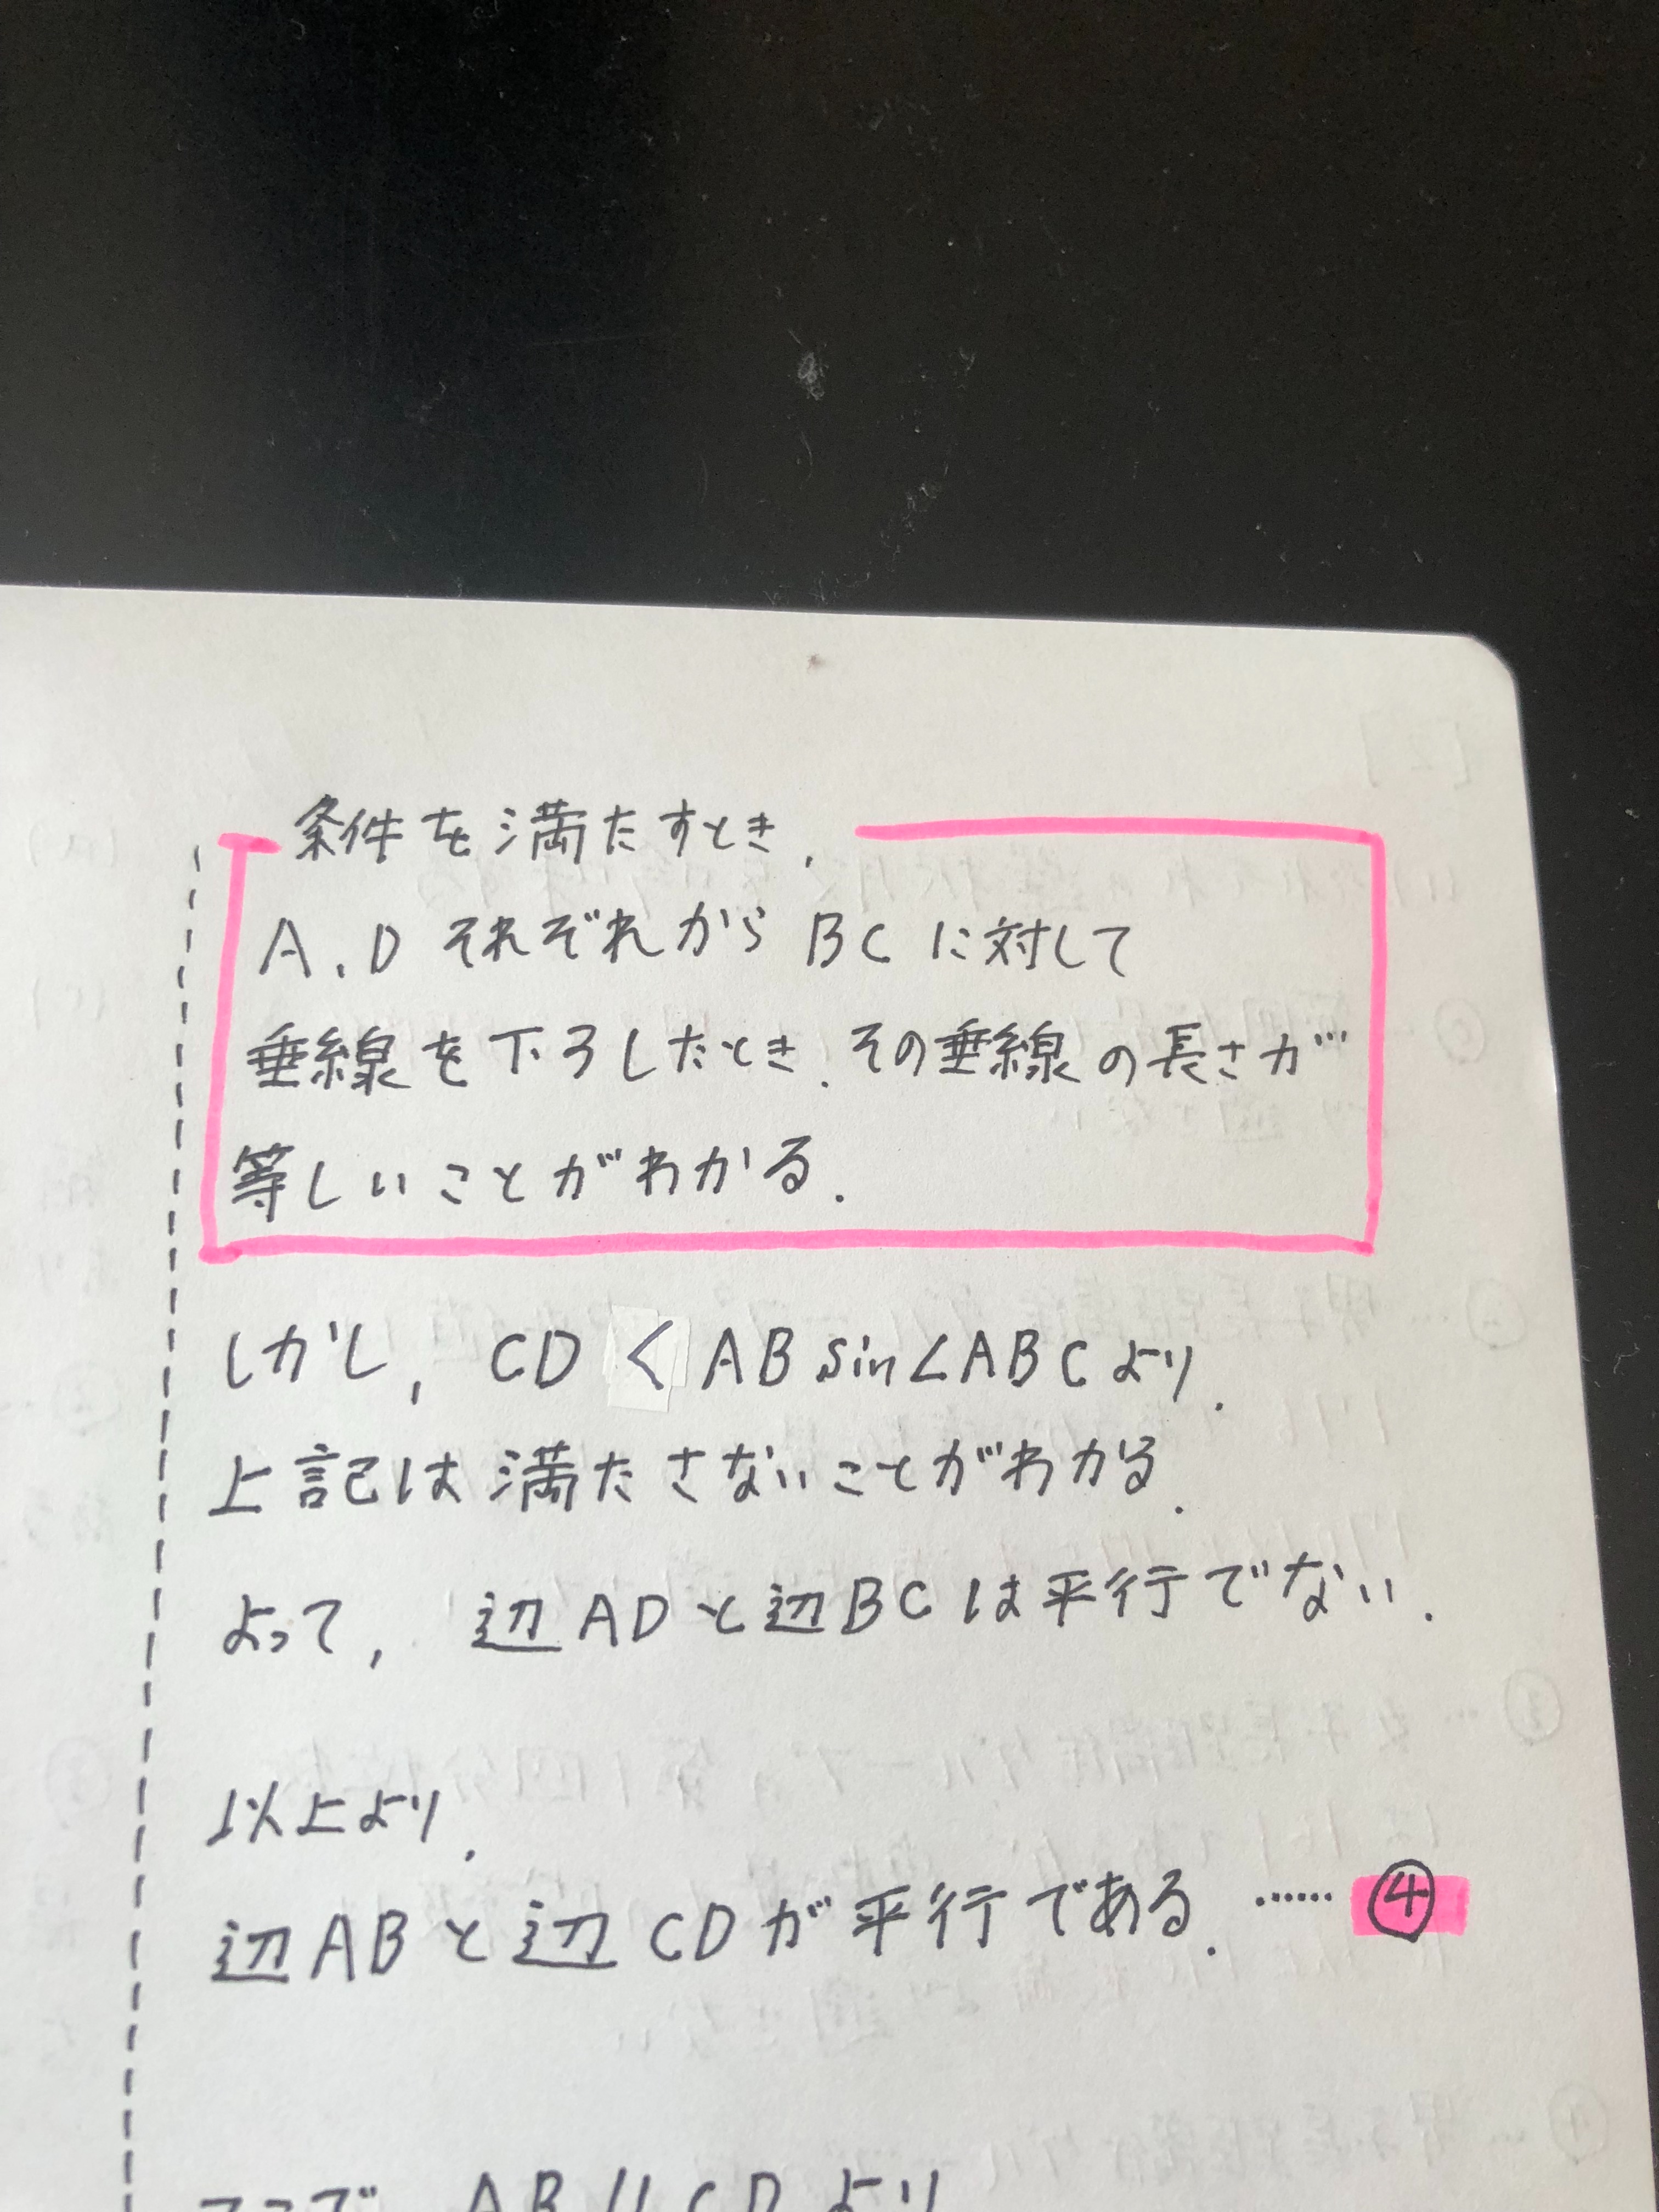 条件を満たすとき,
A, D それぞれから BC に対して
垂線を下ろしたとき, その垂線の長さが
等しいことがわかる.
しかし, CD < AB sin∠ABC より,
上記は満たさないことがわかる.
よって, 辺ADと辺BCは平行でない.
以上より,
辺ABと辺CDが平行である. …… ④
ここで AB // CD より